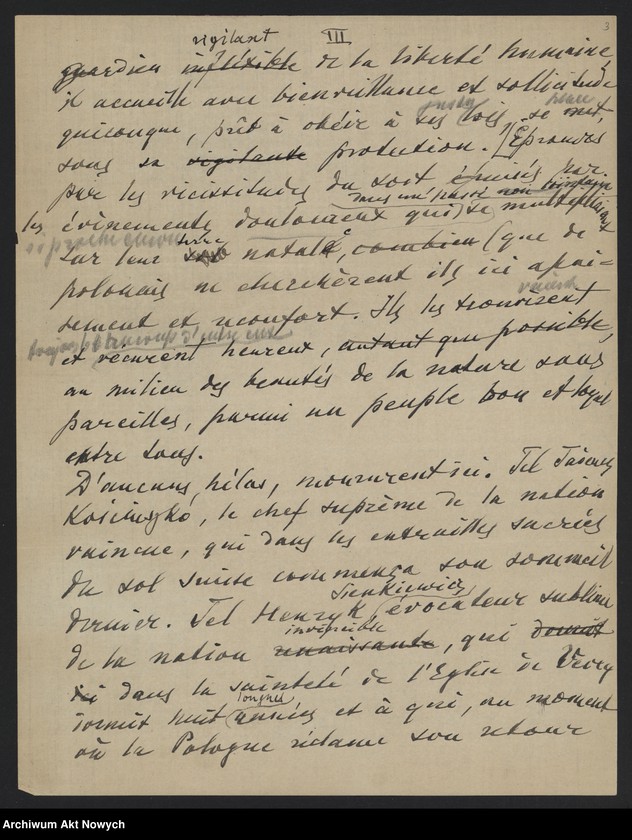 3
vigilant III
guardien inflexible de la liberté humaine,
il accueille avec bienveillance et sollicitude
justes
quiconque, prêt à obéir à ses lois, se met
sous sa vigilante protection. Eprouvés
par les vicissitudes du sort épuisés par
dans une passé non lointain
les évènements douloureux qui se multipliaient
si proche encore
terre
sur leur natale, combien (que de
polonais ne cherchèrent ils ici apai-
sement et réconfort. Ils les trouvèrent
vécurent
beaucoup d'entre eux
et vécurent heureux, autant que possible,
au milieu des beautés de la nature sans
pareilles, parmi un peuple bon et loyal
entre tous.
D'aucuns, hélas, moururent ici. Tel Tadeusz
Kościuszko, le chef suprème de la nation
vaincue, qui dans les entrailles sacrées
du sol suisse commença son sommeil
Sienkiewicz
dernier. Tel Henryk évocateur sublime
invincible
de la nation renaissante, qui dormit
ici dans la sainteté de l'Eglise de Vevey
longues
dormit huit années et à qui, au moment
où la Pologne réclame son retour
Archiwum Akt Nowych